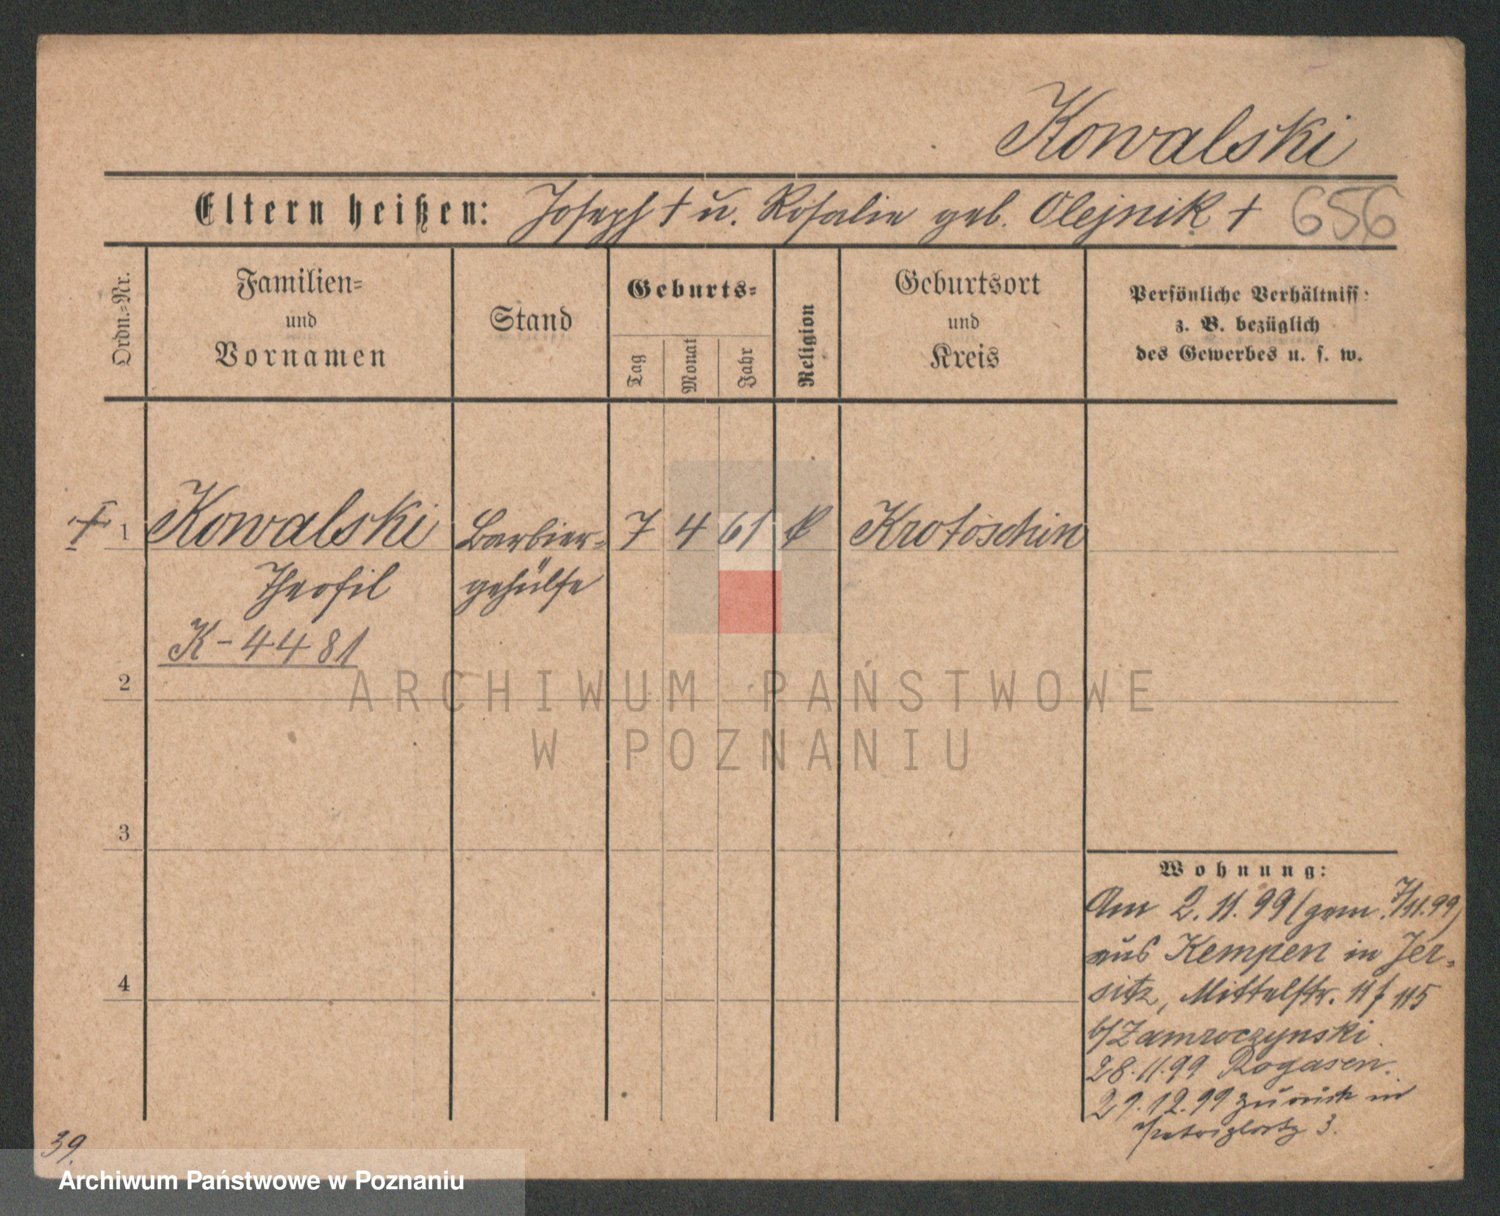 Kowalski
Eltern heißen: Joseph † u. Rosalie geb. Olejnik † 656
Ordn.-Nr.
Familien-
und
Vornamen
Stand
Geburts-
Tag
Monat
Jahr
Religion
Geburtsort
und
Kreis
Persönliche Verhältniss:
z. B. bezüglich
des Gewerbes u. s. w.
1 Kowalski Barbier- 7 4 61 k Krotoschin
Theofil gehülfe
K-4481
2
3
4
Wohnung:
Am 2.11.99 (gem. 7/11.99)
aus Kempen in Jer-
sitz, Mittelstr. 115
b/Zamroczynski
28.11.99 Rogasen.
29.12.99 zurück in
3.
39.
ARCHIWUM PAŃSTWOWE
W POZNANIU
Archiwum Państwowe w Poznaniu